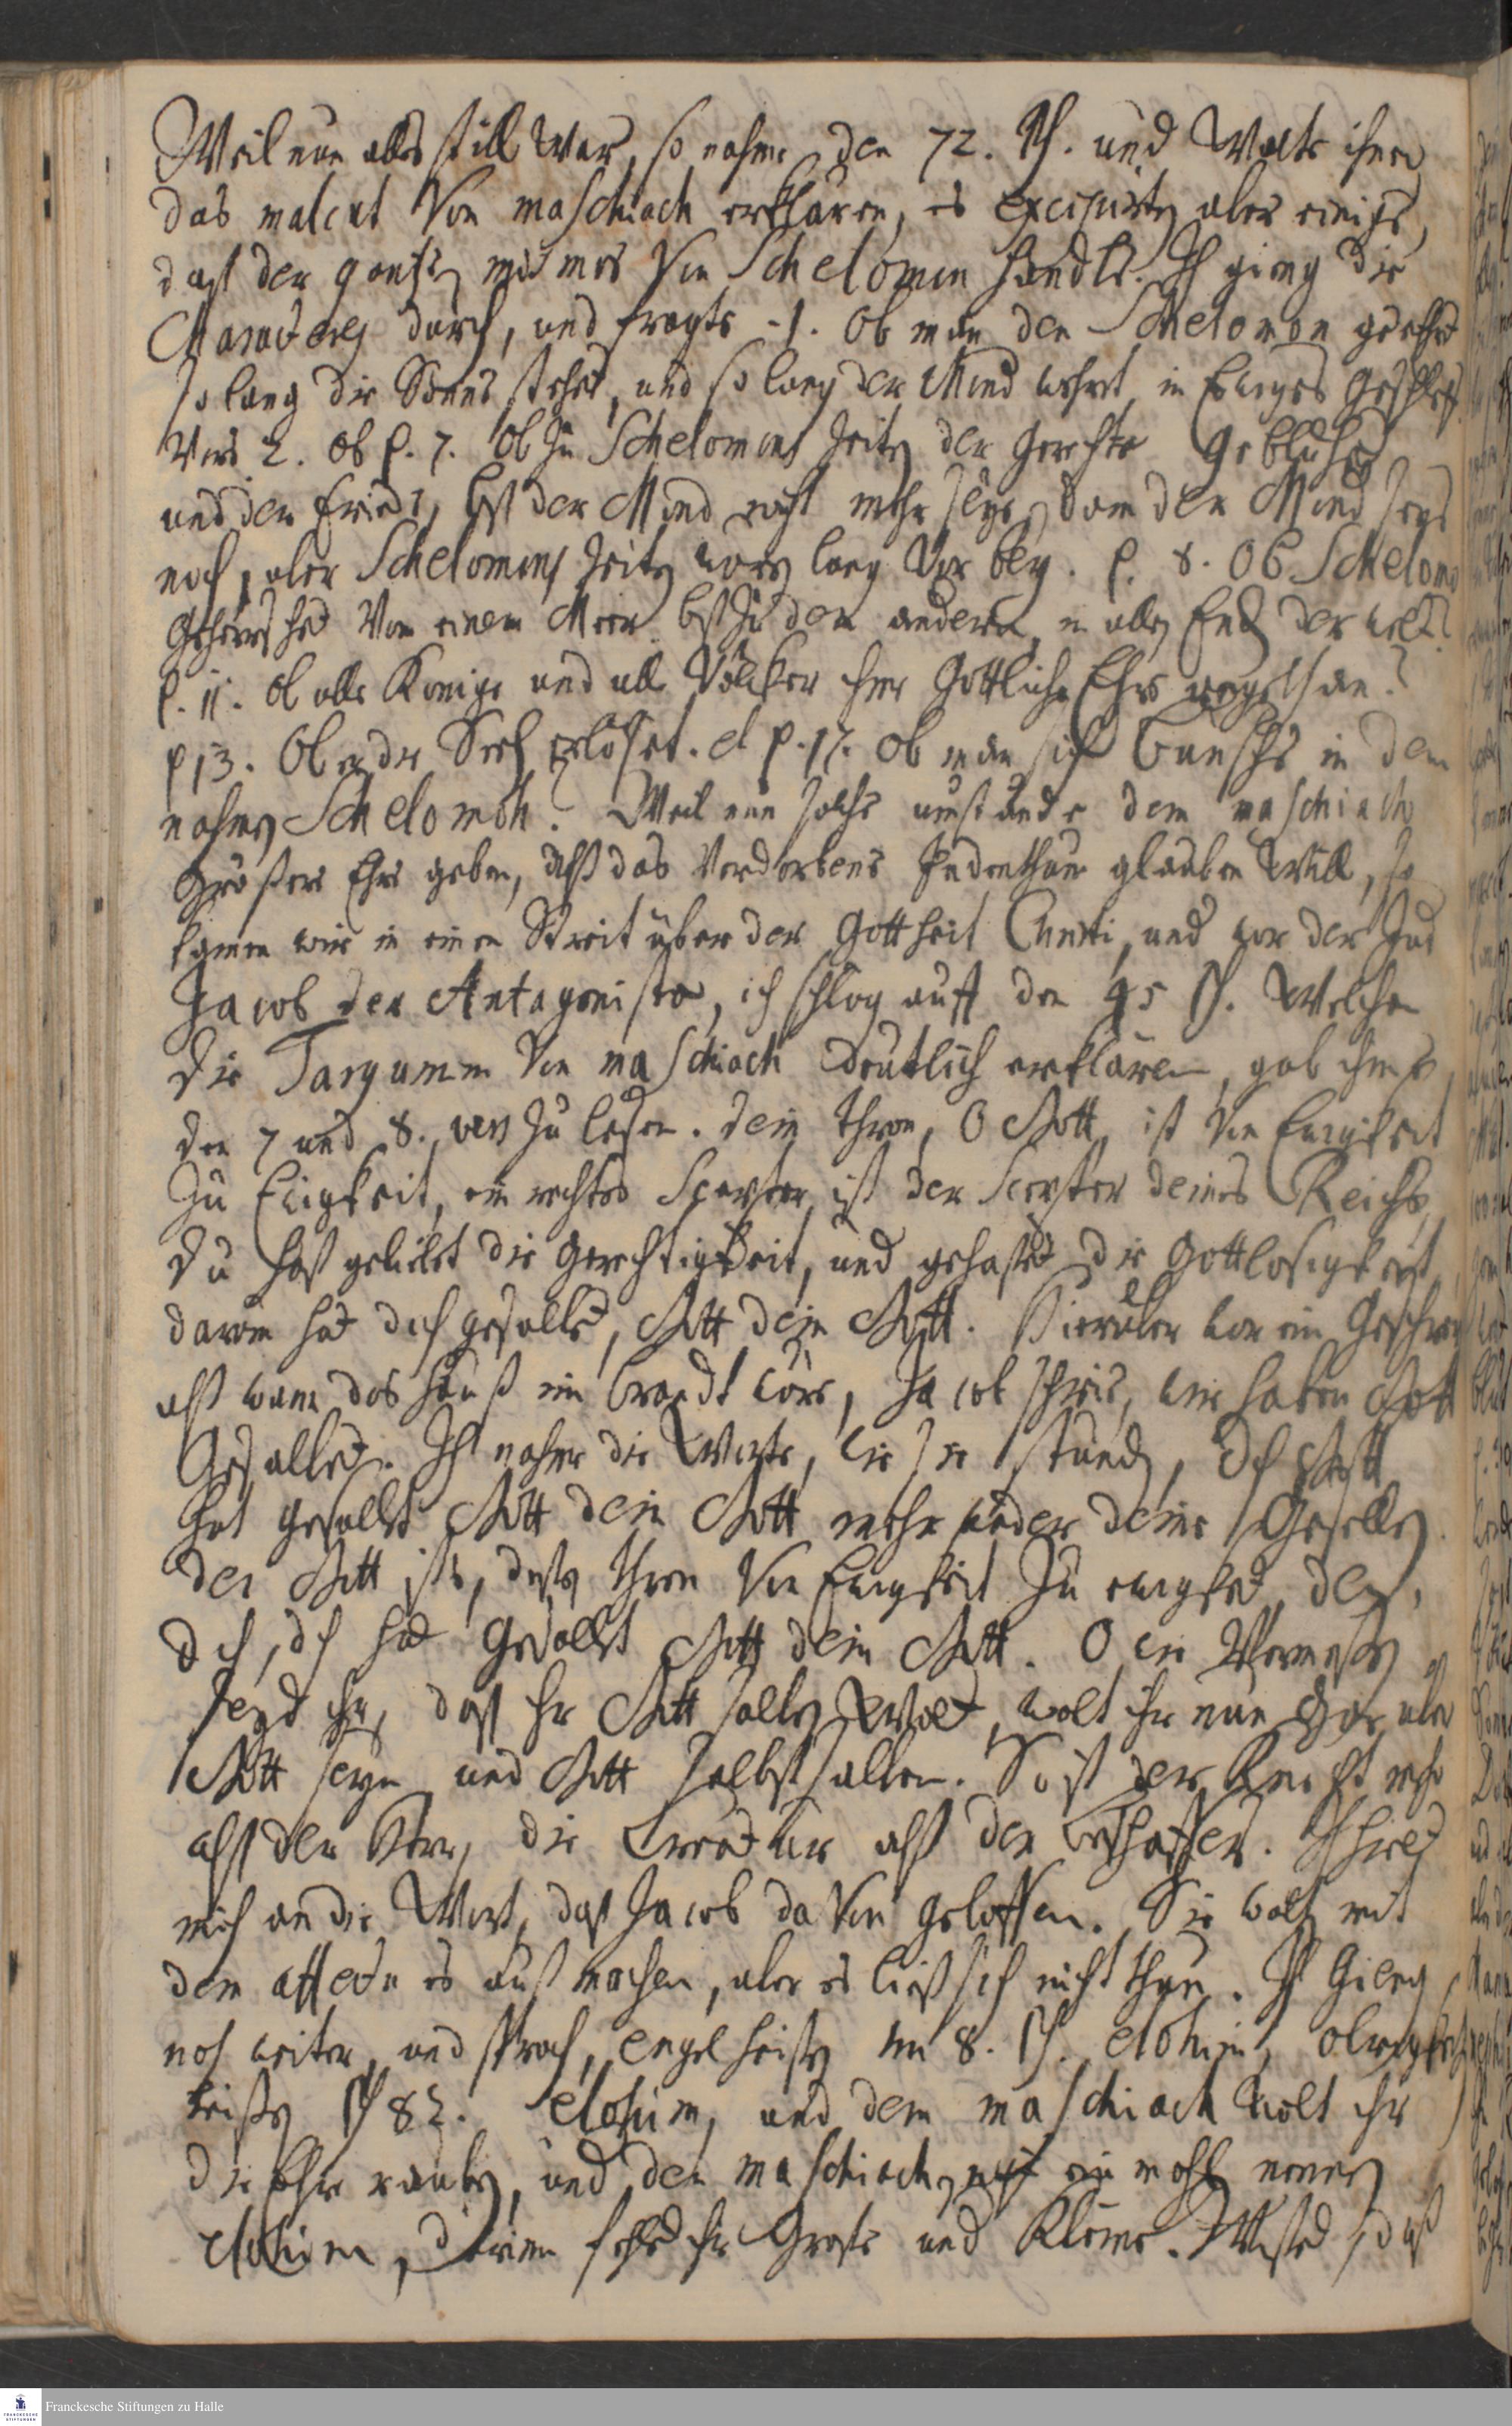 Weil nun alles still war, so nahm den 72. Ps. und wolte ihnen
das malcut von maschiach erklären, es excipirten aber einige,
daß der gantze mismor von Schelomon handle. Ich gieng die
durch, und fragte 1. Ob man den Schelomon geehrt
so lang die Sonne stehet, und so lang der Mond wehret in Ewiges Geschlecht
Vers 2. ob p. 7. Ob zu Schelomons Zeiten der Gerechte geblühet
und der Friede, bist der Mond nicht mehr seye, dann der Mond seye
noch, aber Schelomons Zeiten waren lang vorbey. p. 8. Ob Schelomo
Geherrschet von einem Meer bist zu dem andern, in allen Enden der welt?
p. 11. Ob alle Könige und alle Völcker ihm Göttliche Ehre angethan?
p 13. Ob er die Seelen erlöset. et p. 17. Ob man sich benschte in dem
nahmen Schelomoh? Weil nun solche umstände dem maschiach
Größere Ehre geben, alß das Verdorbene Judenthum glauben will, so
kamen wir in einen Streit über der Gottheit Christi, und war der Jud
Jacob der Antagonista, ich schlug auff den 45 Ps. Welchen
die Targumim von maschiach deutlich erklären, gab ihnen
den 7 und 8. vers zu lesen. dein thron, O Gott, ist von Ewigkeit
zu Ewigkeit, ein rechtes Scepter ist der Scepter deines Reichs,
du hast geliebet die Gerechtigkeit, und gehasset die Gottlosigkeit
darum hat dich gesalbet, Gott dein Gott. Hierüber war ein Geschrey
alß wann das Hauß im brandt wäre, Jacob schrie, wir haben Gott
Gesalbet. Ich nahm die Worte, wie sie stunden, dich Gott
hat gesalbet Gott dein Gott mehr weder deine Gesellen.
der Gott ists, dessen thron von Ewigkeit zu ewigkeit, den,
dich, dich hat Gesalbet Gott dein Gott. O wie Vermessen
seyd ihr, daß ihr Gott salben wolt, wolt ihr nun gar über
Gott seyn und Gott selbst salben. So ist der Knecht mehr
alß der Herr, die Creatur alß der Erschaffer. Ich hielt
mich an die Wort, daß Jacob davon geloffen. Sie wolten mit
dem affectu es außmachen, aber es ließ sich nicht thun. Ich gieng
noch weiter, und sprach, engel heissen im 8. Ps. elohim, obrigkeit
heissen Ps 82. elohim, und dem maschiach wolt ihr
die Ehre rauben, und den maschiach nicht ein mahl nennen
elohim, darinn fehlt ihr Grosse und Kleine. Wisset, daß
Franckesche Stiftungen zu Halle